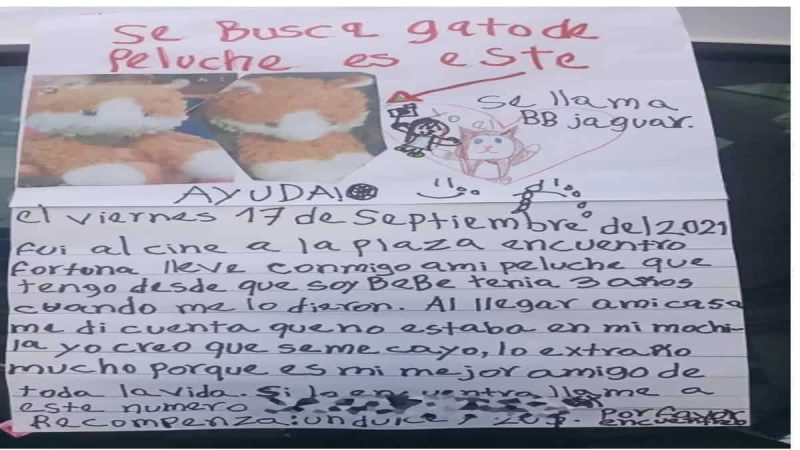 Se Busca gato de
Peluche es este
Se llama
BB jaguar.
yo el
AYUDA!
el viernes 17 de Septiembre del 2021
fui al cine a la plaza encuentro
fortuna lleve conmigo ami peluche que
tengo desde que soy BeBe tenia 3 años
cuando me lo dieron. Al llegar ami casa
me di cuenta que no estaba en mi mochi-
la yo creo que se me cayo, lo extraño
mucho porque es mi mejor amigo de
toda la vida. Si lo encuentra llame a
este numero
Recompenza: un dulce y 20$. Por favor
encuentrenlo